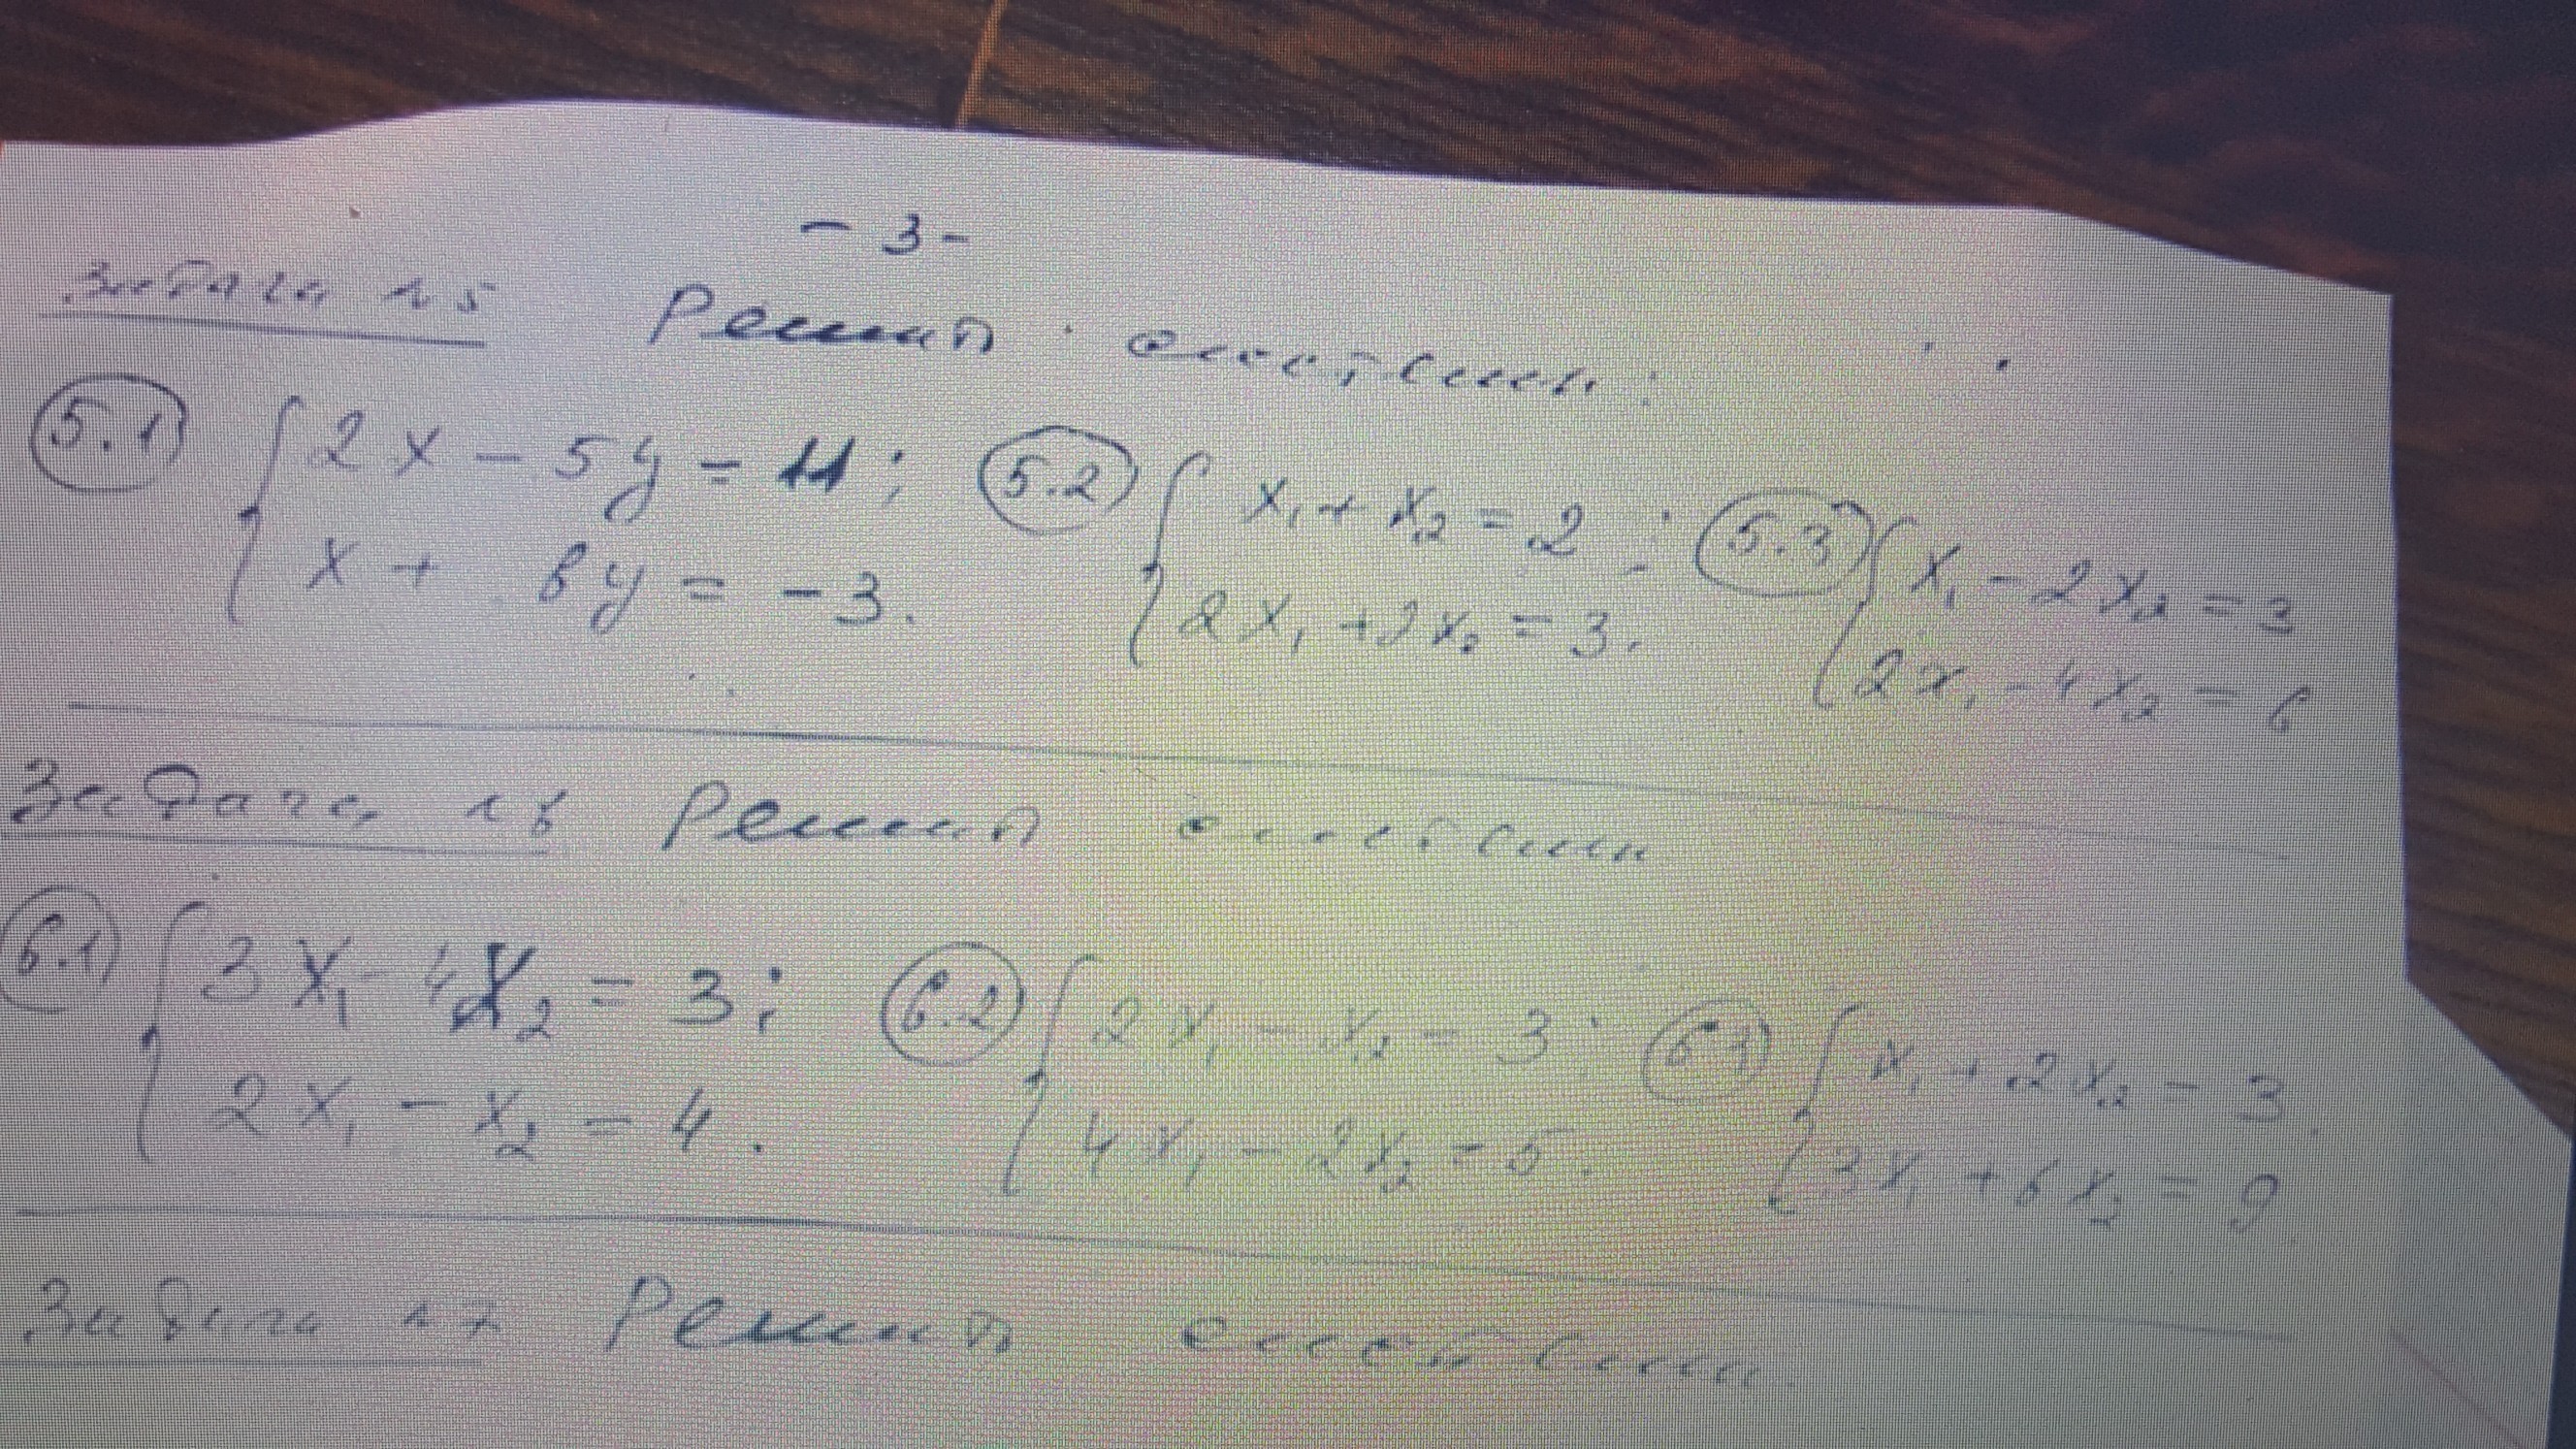 - 3 -
Задача №5 Решить системы:
5.1 { 2x - 5y = 11; 5.2 { x₁ + x₂ = 2; 5.3 { x₁ - 2x₂ = 3
x + 6y = -3. 2x₁ + 2x₂ = 3. 2x₁ - 4x₂ = 6
Задача №6 Решить системы
6.1 { 3x₁ - 4x₂ = 3; 6.2 { 2x₁ - x₂ = 3; 6.3 { x₁ + 2x₂ = 3
2x₁ - x₂ = 4. 4x₁ - 2x₂ = 5. 3x₁ + 6x₂ = 9
Задача №7 Решить системы